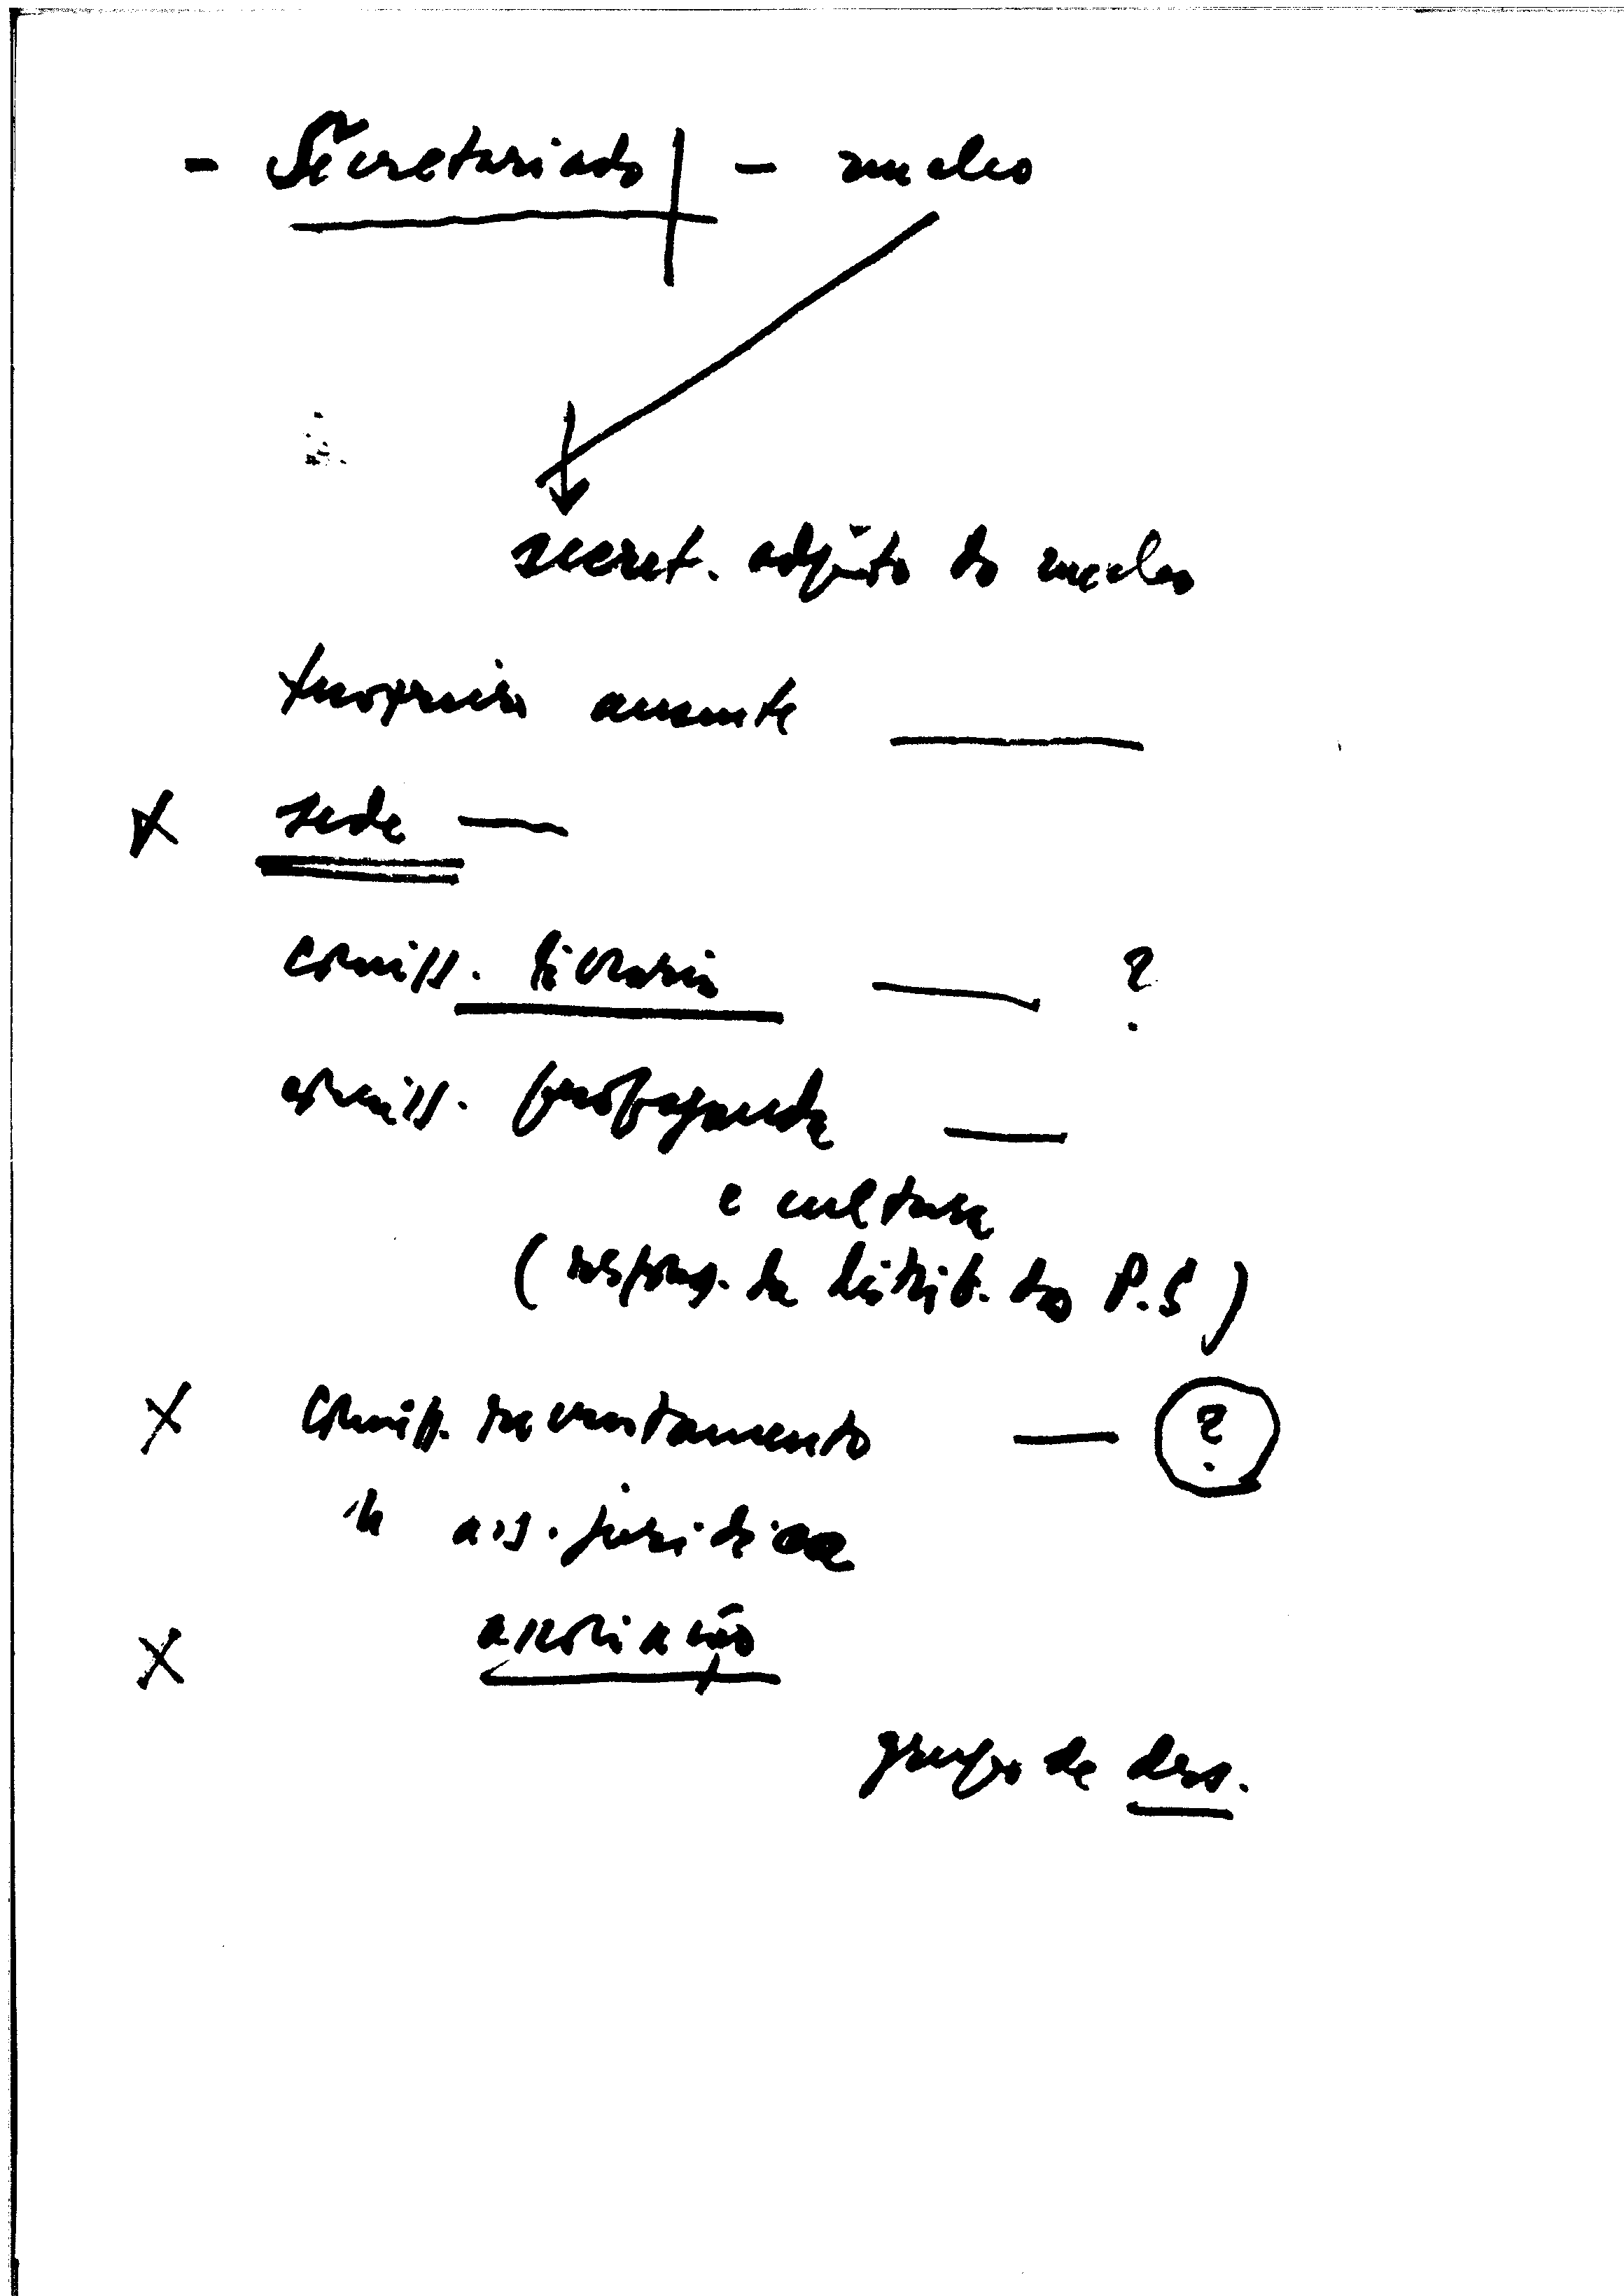 - Secretariado | - nucleo
secret. adjūto do nucleo
ausente
x sede —
comiss. livraria — ?
comiss. propaganda —
e cultura
(respons. da distrib. do P.S)
x comiss. recrutamento — ?
" ass. juridica
x associação
grupo de des.